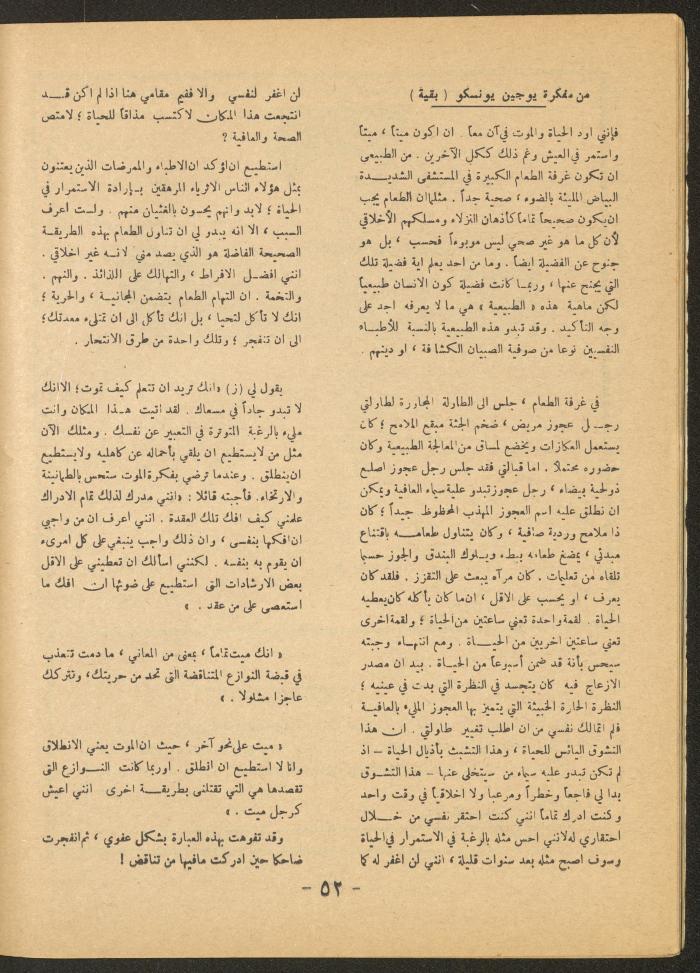 من مفكرة يوجين يونسكو ( بقية )
فإنني اود الحياة والموت في آن معاً . ان اكون ميتاً ، ميتاً
واستمر في العيش رغم ذلك ككل الآخرين . من الطبيعي
ان تكون غرفة الطعام الكبيرة في المستشفى الشديدة
البياض المليئة بالضوء ، صحية جداً . مثلما ان الطعام يجب
ان يكون صحيحاً تماماً كأذهان النزلاء ومسلكهم الأخلاقي
لأن كل ما هو غير صحي ليس موبوءاً فحسب ، بل هو
جنوح عن الفضيلة ايضاً . وما من احد يعلم اية فضيلة تلك
التي يجنح عنها ، وربما كانت فضيلة كون الانسان طبيعياً
لكن ماهية هذه « الطبيعية » هي ما لا يعرفه احد على
وجه التأكيد . وقد تبدو هذه الطبيعية بالنسبة للأطباء
النفسيين نوعا من صوفية الصبيان الكشافة ، او دينهم .
في غرفة الطعام ، جلس الى الطاولة المجاورة لطاولتي
رجل عجوز مريض ، ضخم الجثة مبقع الملامح ؛ كان
يستعمل العكازات ويخضع لمساق من المعالجة الطبيعية وكان
حضوره محتملاً . اما قبالتي فقد جلس رجل عجوز اصلع
ذو لحية بيضاء ، رجل عجوز تبدو عليه سيماء العافية ويمكن
ان نطلق عليه اسم العجوز المهذب المحظوظ جيداً ؛ كان
ذا ملامح وردية صافية ، وكان يتناول طعامه باقتناع
مبدئي ، يمضغ طعامه ببطء ويلوك البندق والجوز حسبما
تلقاه من تعليمات . كان مرآه يبعث على التقزز . فلقد كان
يعرف ، او يحسب على الاقل ، ان ما كان يأكله كان يعطيه
الحياة . لقمة واحدة تعني ساعتين من الحياة ؛ ولقمة اخرى
تعني ساعتين اخريين من الحياة . ومع انتهاء وجبته
سيحس بأنة قد ضمن أسبوعاً من الحياة . بيد ان مصدر
الازعاج فيه كان يتجسد في النظرة التي بدت في عينيه ؛
النظرة الحارة الخبيثة التي يتميز بها العجوز المليء بالعافية
فلم اتمالك نفسي من ان اطلب تغيير طاولتي . ان هذا
التشوق اليائس للحياة ، وهذا التشبث بأذيال الحياة - اذ
لم تكن تبدو عليه سيماء من سيتخلى عنها - هذا التشوق
بدا لي فاجعاً وخطراً ومرعبا ولا اخلاقياً في وقت واحد
وكنت ادرك تماماً انني كنت احتقر نفسي من خلال
احتقاري له لانني احس مثله بالرغبة في الاستمرار في الحياة
وسوف اصبح مثله بعد سنوات قليلة ، انني لن اغفر له كما
لن اغفر لنفسي والا ففيم مقامي هنا اذا لم اكن قد
انتجعت هذا المكان لاكتسب مذاقاً للحياة ؛ لامتص
الصحة والعافية ؟
استطيع ان اؤكد ان الاطباء والممرضات الذين يعتنون
بمثل هؤلاء الناس الاثرياء المرهقين بإرادة الاستمرار في
الحياة ؛ لابد وانهم يحسون بالغثيان منهم . ولست أعرف
السبب ، الا انه يبدو لي ان تناول الطعام بهذه الطريقة
الصحيحة الفاضلة هو الذي يصدمني لانه غير اخلاقي .
انني افضل الافراط ، والتهالك على اللذائذ . والنهم .
والتخمة . ان التهام الطعام يتضمن المجانية ، والحرية ؛
انك لا تأكل لتحيا ، بل انك تأكل الى ان تمتلىء معدتك ؛
الى ان تنفجر ؛ وتلك واحدة من طرق الانتحار .
يقول لي (ز) «انك تريد ان تتعلم كيف تموت ؛ الا انك
لا تبدو جاداً في مسعاك . لقد اتيت هذا المكان وانت
مليء بالرغبة المتوترة في التعبير عن نفسك . ومثلك الآن
مثل من لا يستطيع ان يلقي بأحماله عن كاهليه ولا يستطيع
ان ينطلق . وعندما ترضي بفكرة الموت ستحس بالطمأنينة
والارتخاء. فأجبته قائلا : «انني مدرك لذلك تمام الادراك
علمني كيف افك تلك العقدة . انني أعرف ان من واجبي
ان افكها بنفسي ، وان ذلك واجب ينبغي على كل امرىء
ان يقوم به بنفسه . لكنني اسألك ان تعطيني على الاقل
بعض الارشادات التي استطيع على ضوئها ان افك ما
استعصى على من عقد . »
« انك ميت تماماً ، بمعنى من المعاني ، ما دمت تتعذب
في قبضة النوازع المتناقضة التي تحد من حريتك ، وتتركك
عاجزا مشلولا . »
« ميت على نحو آخر ، حيث ان الموت يعني الانطلاق
وانا لا استطيع ان انطلق . اوربما كانت النوازع التي
تقصدها هي التي تقتلني بطريقة اخرى انني اعيش
كرجل ميت . »
وقد تفوهت بهذه العبارة بشكل عفوي ، ثم انفجرت
ضاحكا حين ادركت ما فيها من تناقض !
- ٥٢ -